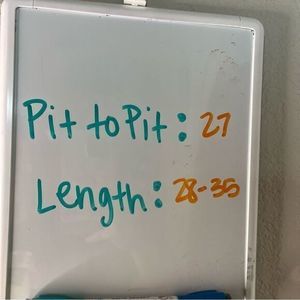 Pit to Pit: 27
Length: 28-35